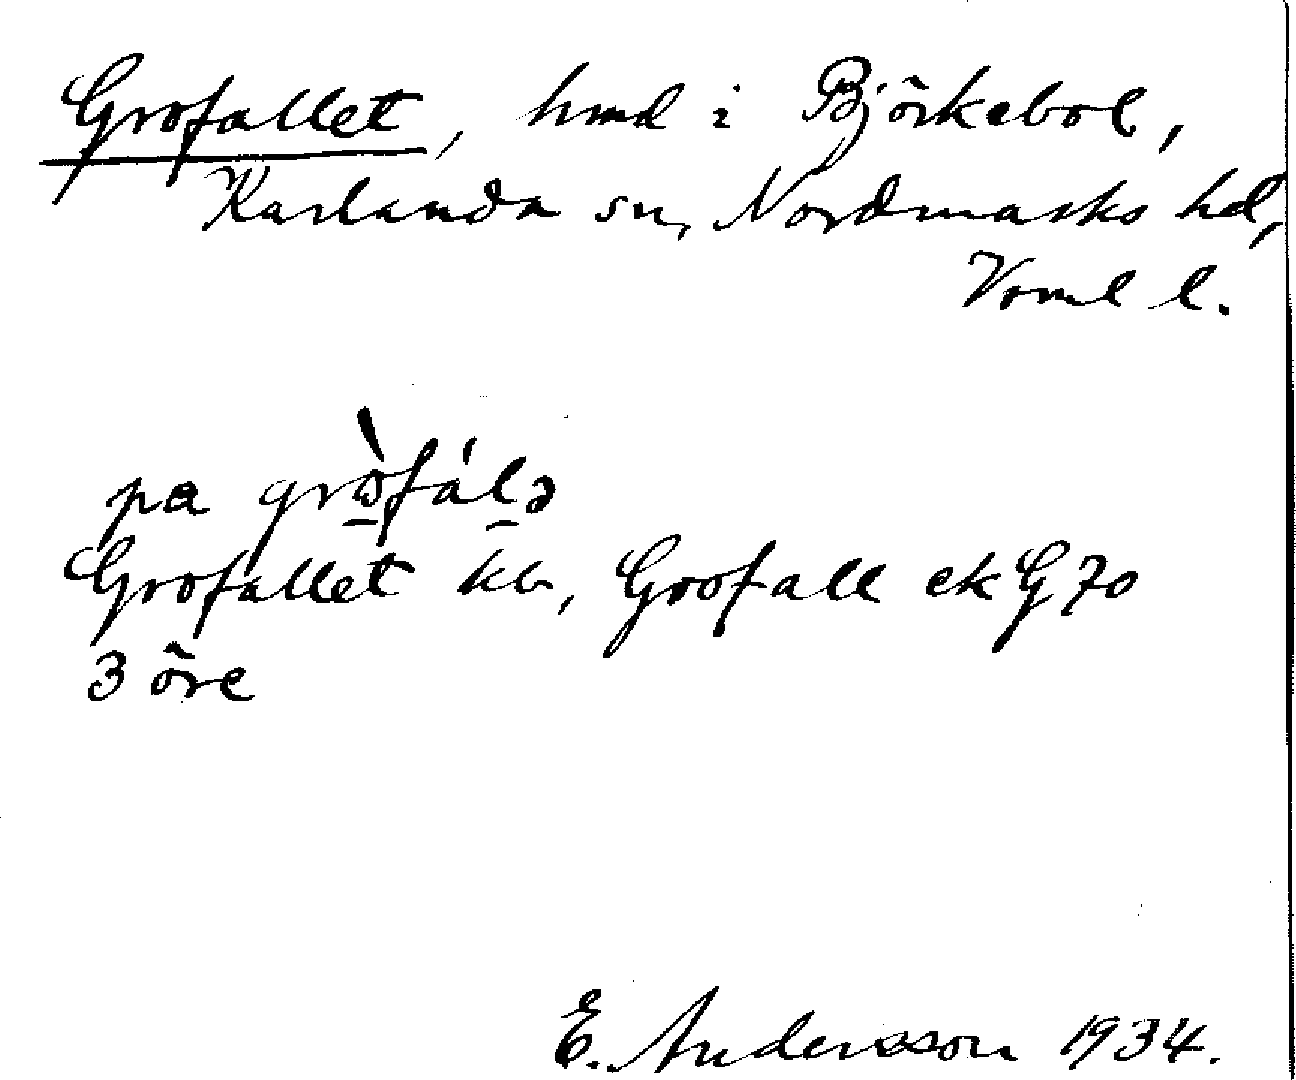 Grofallet, hmd i Björkebol,
Karlanda sn, Nordmarks hd,
Vrml l.
pa grò̱fál̠ə
Grofallet kb, Grofall ek G 70
3 öre
E. Andersson 1934.